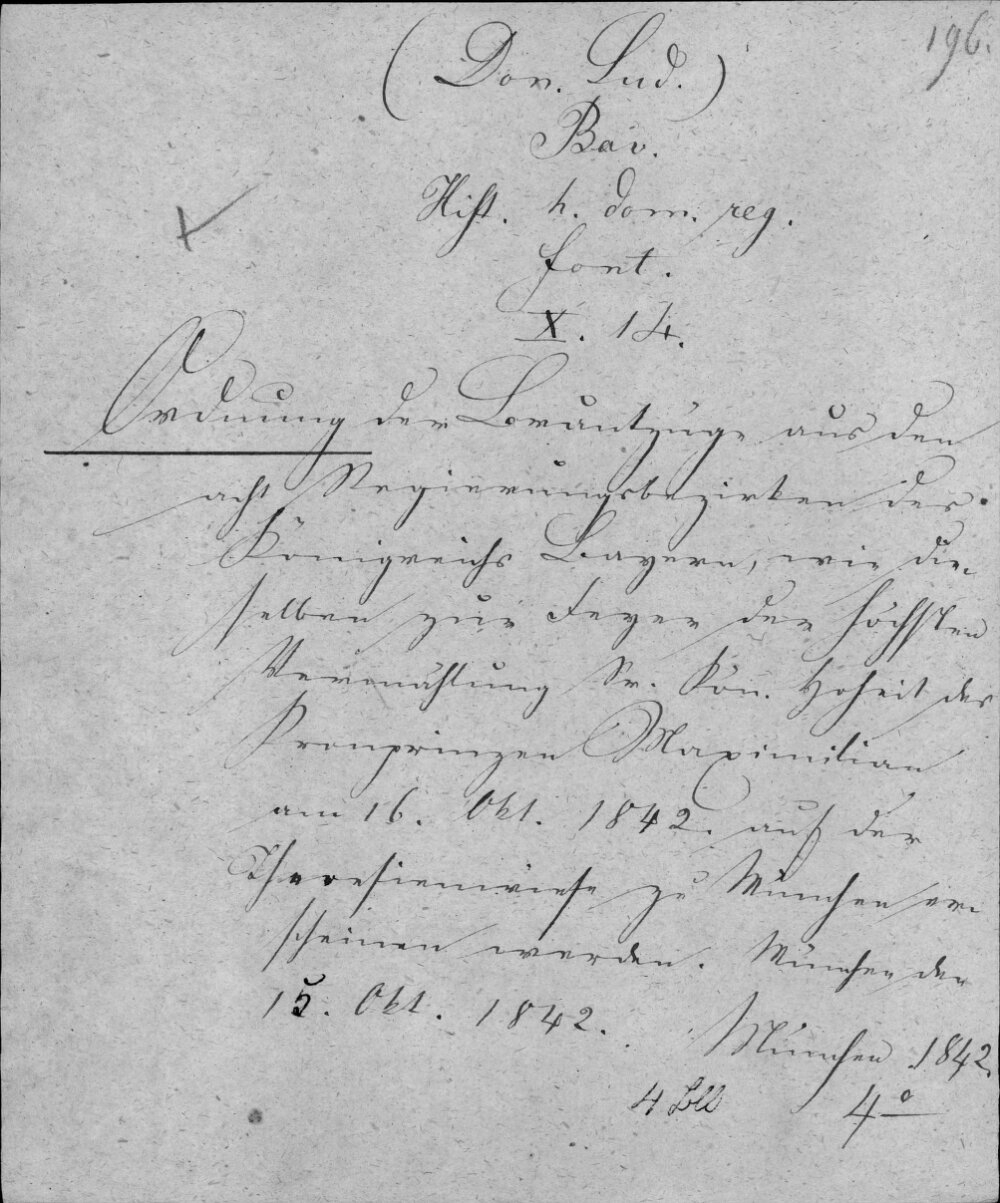 196.
(Don. Lud.)
Bav.
Hist. h. dom. reg.
font.
X. 14.
Ordnung der Brautzüge aus den
acht Regierungsbezirken des
Königreichs Bayern, wie die-
selben zur Feyer der höchsten
Vermählung Sr. Kön. Hoheit des
Kronprinzen Maximilian
am 16. Okt. 1842. auf der
Theresienwiese zu München er-
scheinen werden. München den
15. Okt. 1842.
München 1842.
4 Bll 4°